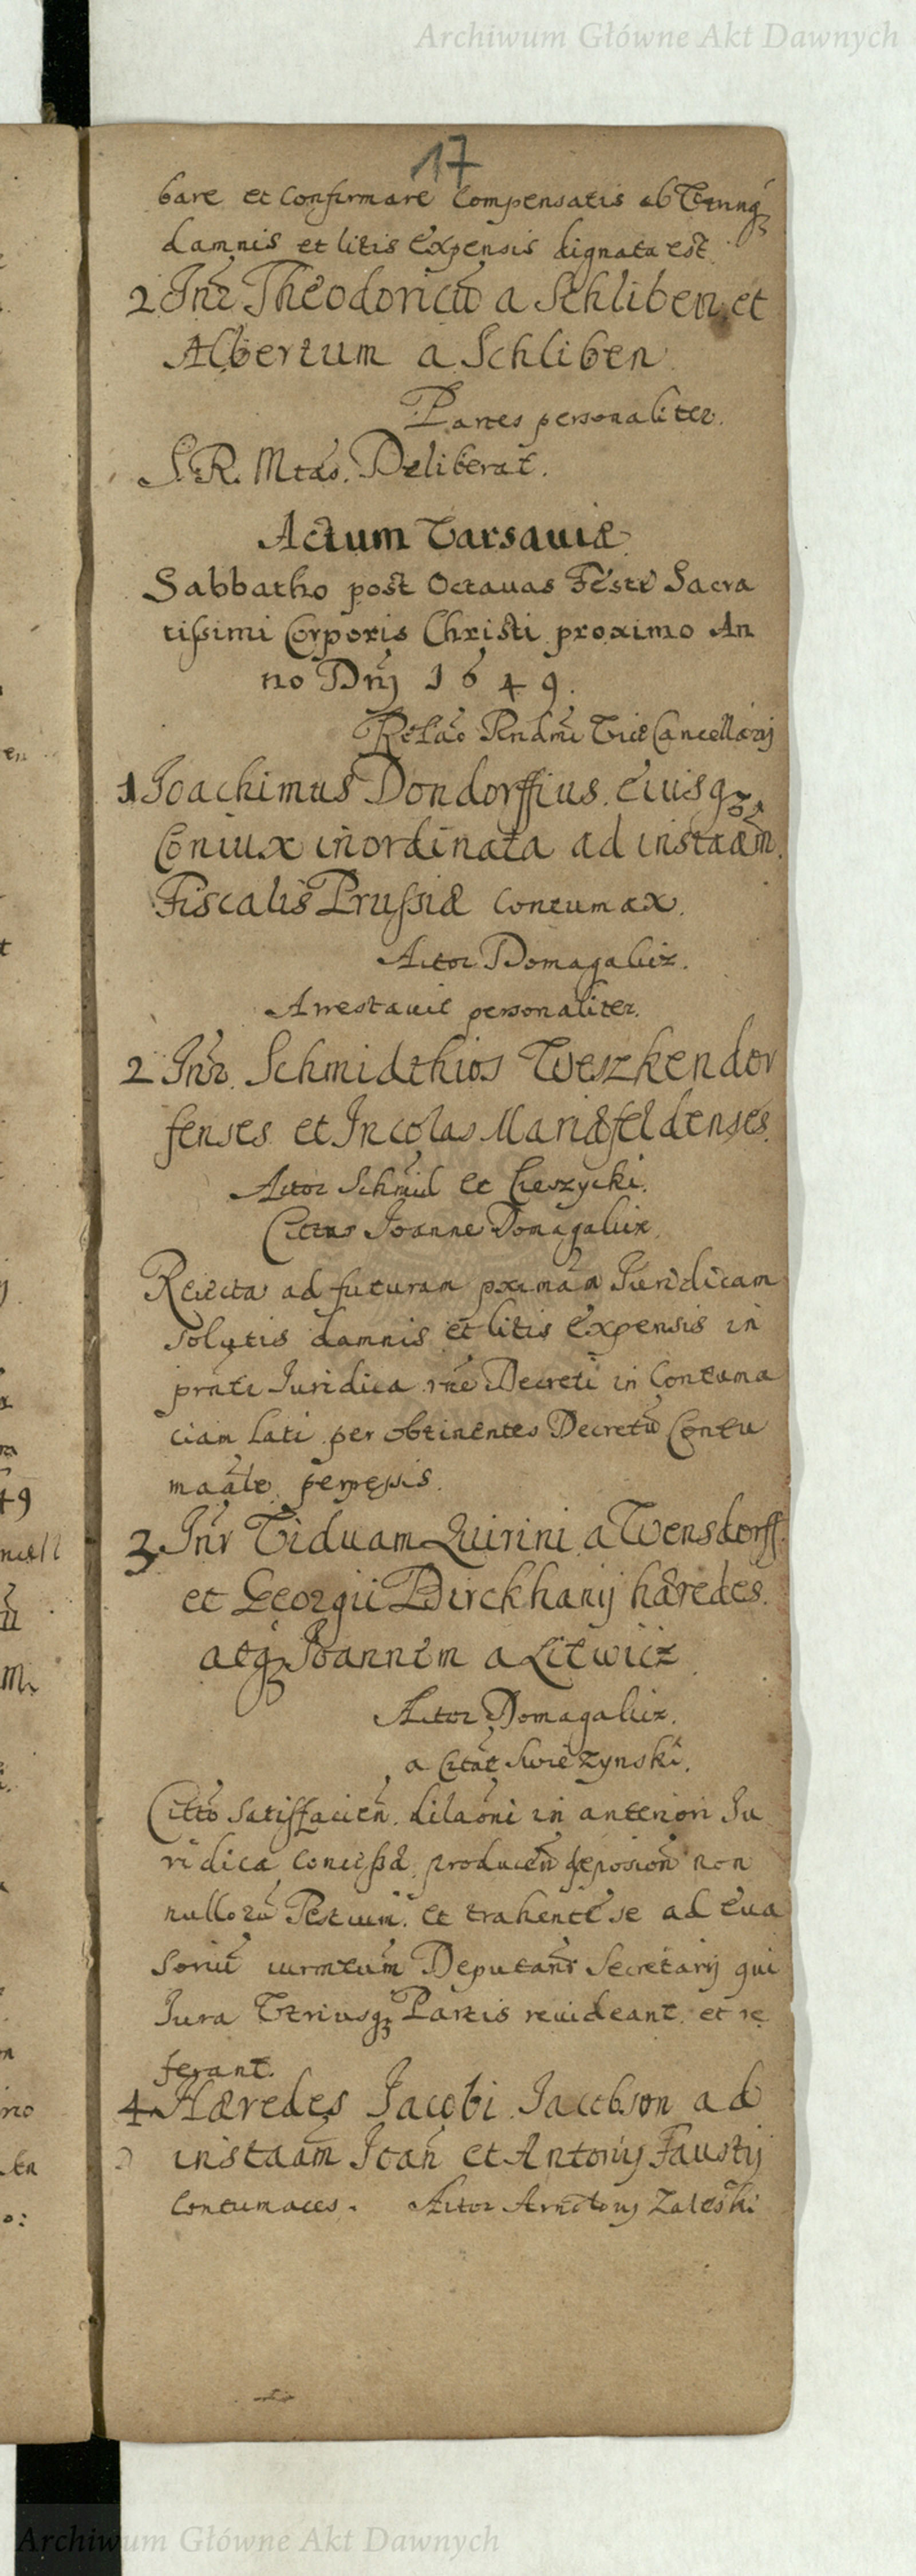 Archiwum Główne Akt Dawnych
17
bare et Confirmare Compensatis ab
damnis et litis Expensis dignata est.
2 Inr Theodoricũ a Schliben et
Albertum a Schliben
Partes personaliter.
S. R. Mtas. Deliberat.
Actum Varsaviæ
Sabbatho post Octavas Festi Sacra
tissimi Corporis Christi proximo An
no Dnj 1649.
Relão Pendmi Vice Cancellarij
1 Joachimus Dondorffius. eiusq3
Coniux inordinata ad instaãm.
Fiscalis Prussiæ contumax.
Actor Domagalicz.
Arrestavit personaliter.
2 Inr. Schmidthios Weszkendor
fenses et Incolas Mariæfeldenses.
Actor Schmid et Cieszycki.
Citus Joanne Domagalicz
Reiecta ad futuram pximam Juridicam
solutis damnis et litis Expensis in
pnti Juridica rñe Decreti in Contuma
ciam lati per obtinentes Decretũ Contu
maãle perceptis.
3 Inr Viduam Quirini a Wensdorff.
et Georgii Birckhanij hæredes.
atq3 Joannem a Litwicz
Actor Domagalicz.
a Citat Swiezynski.
Citto satisfacien. dilaoni in anteriori Ju
ridica concessæ. producen deposion non
nullorũ Testium. et trahente se ad eva
soriũ iurmtum Deputantr Secretarij qui
Jura Vtriusq3 Partis revideant. et re
ferant.
4 Hæredes Jacobi Jacobson ad
instaãm Joan et Antonij Faustij
contumaces. Actor Zaleski
Archiwum Główne Akt Dawnych